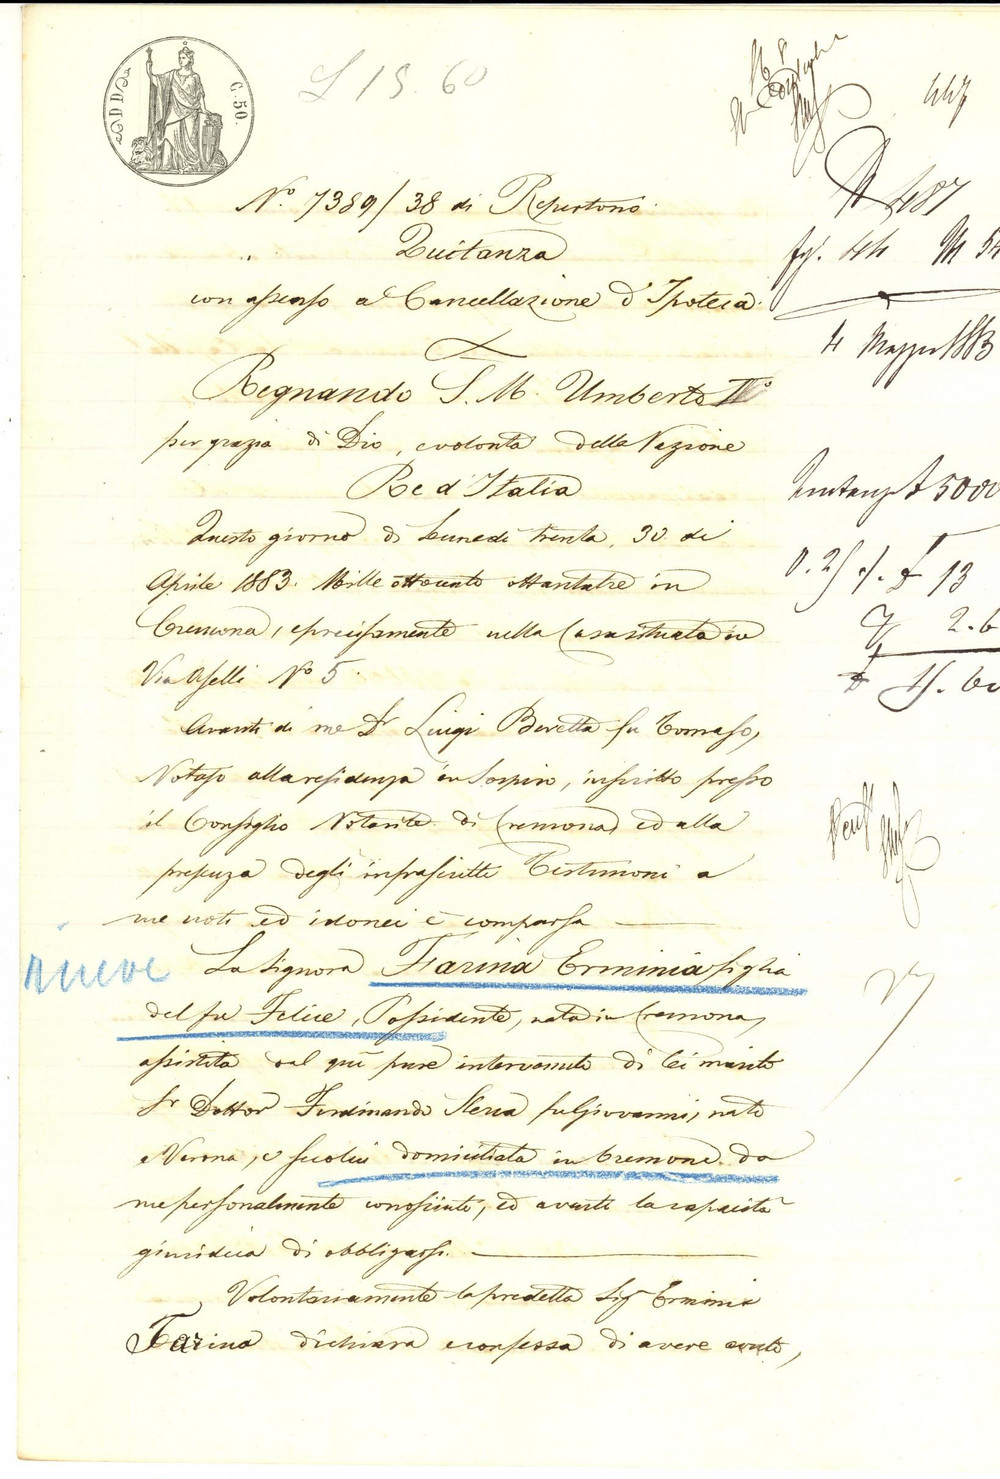 C. 50.
L 15. 60
447
N.° 7389/38 di Repertorio
Quitanza
con assenso a Cancellazione d'Ipoteca.
Regnando S. M. Umberto I°
per grazia di Dio, e volontà della Nazione
Re d'Italia
Questo giorno di Lunedì trenta, 30 di
Aprile 1883. Mille ottocento ottantatre in
Cremona, e precisamente nella Casa situata in
Via Aselli N° 5.
Avanti di me Dr Luigi Beretta fu Tomaso,
Notajo alla residenza in Sospiro, inscritto presso
il Consiglio Notarile di Cremona ed alla
presenza degli infrascritti Testimoni a
me noti ed idonei è comparsa
La Signora Farina Erminia figlia
del fu Felice, Possidente, nata in Cremona,
assistita dal quì pure intervenuto di lei marito
Sr Dottor Ferdinando fu Giovanni, nato
a Verona, e seco lui domiciliata in Cremona da
me personalmente conosciute, ed avente la capacità
giuridica di obbligarsi.
Volontariamente la predetta Sigr Erminia
Farina dichiara e confessa di avere avute,
N 487
fgl. 44 M 54
4 Maggio 1883
Quitanza £ 5000
£ 13
2. 6
£ 15. 60